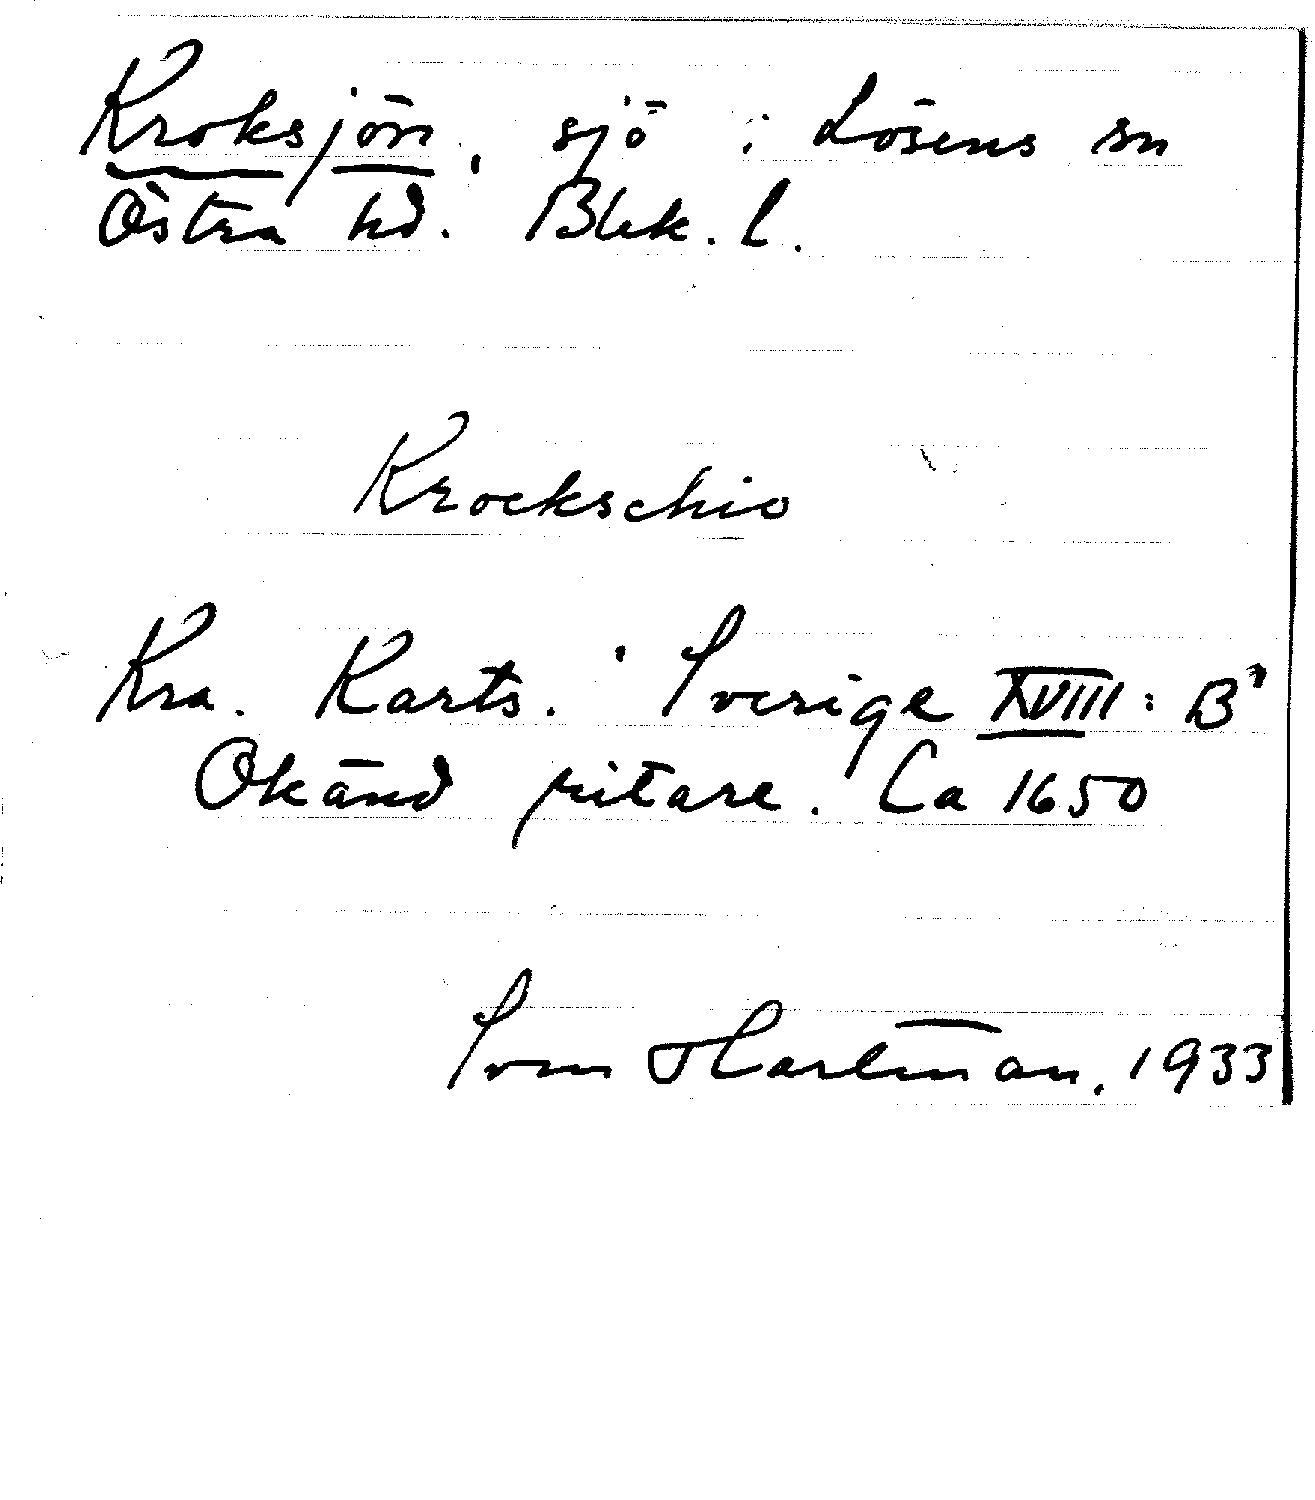 Kroksjön, sjö i Lösens sn
Östra hd. Blek. l.
Krockschio
Kra. Karts. Sverige XVIII: B
Okänd ritare. Ca 1650
Sven Hartman, 1933